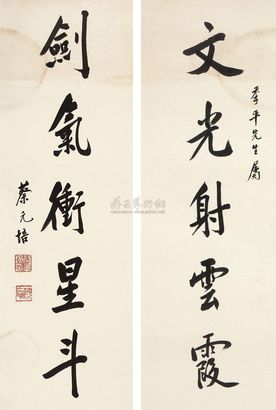 文光射雲霞
季平先生屬
劍氣衝星斗
蔡元培